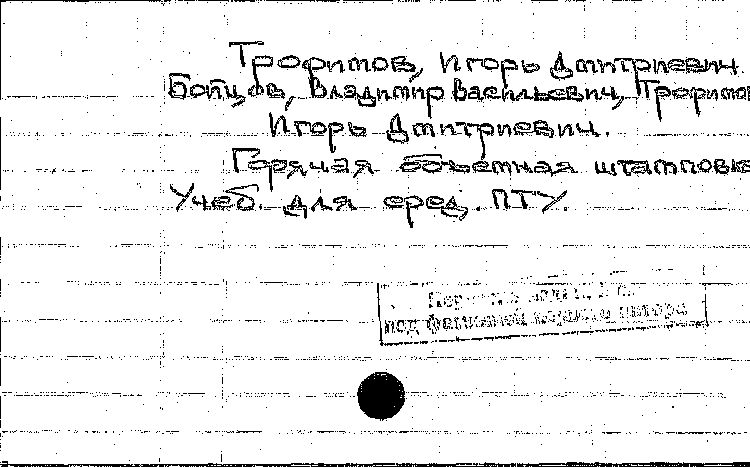 Трофимов, Игорь Дмитриевич.
Бойцов, Владимир Васильевич, Трофимов
Игорь Дмитриевич.
Горячая объемная штамповка
Учеб. для сред. ПТУ.
под фамилией первого автора